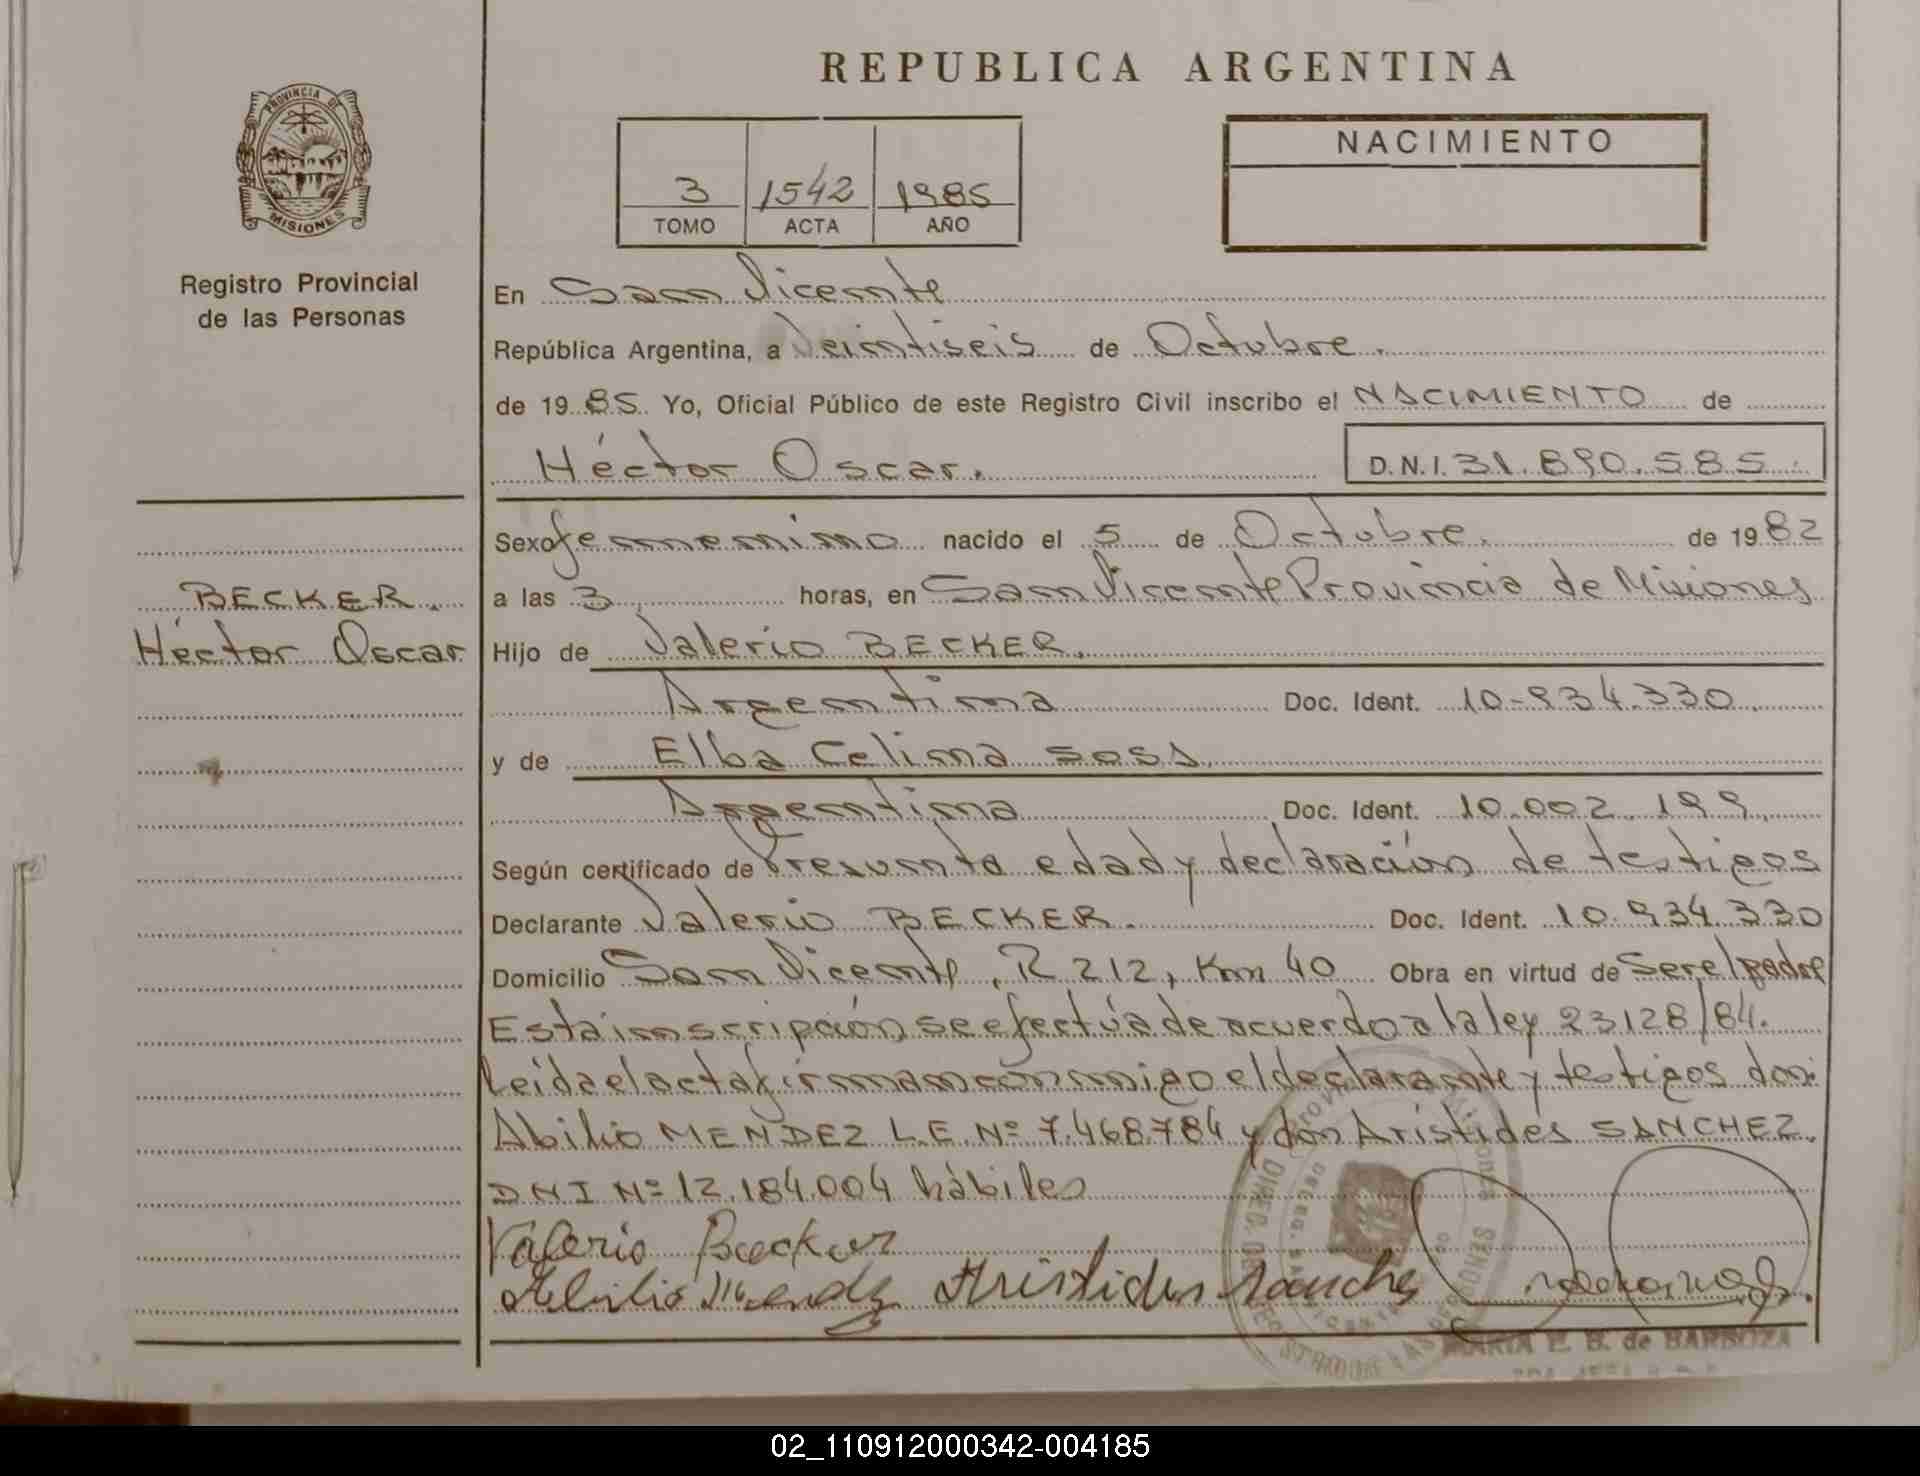 REPUBLICA ARGENTINA
PROVINCIA DE
MISIONES
Registro Provincial
de las Personas
3 1542 1985
TOMO ACTA AÑO
NACIMIENTO
En San Vicente
República Argentina, a Veintiseis de Octubre.
de 1985. Yo, Oficial Público de este Registro Civil inscribo el NACIMIENTO de
Héctor Oscar. D.N.I. 31.890.585.
BECKER.
Héctor Oscar
Sexo femenino nacido el 5 de Octubre. de 1982
a las 3 horas, en San Vicente Provincia de Misiones
Hijo de Valerio BECKER.
Argentina Doc. Ident. 10-934.330
y de Elba Celina sosa
Argentina Doc. Ident. 10.002.199
Según certificado de Presunta edad y declaración de testigos
Declarante Valerio BECKER. Doc. Ident. 10.934.330
Domicilio San Vicente, R 212, Km 40 Obra en virtud de Ser el padre
Esta inscripción se efectúa de acuerdo a la ley 23128/84.
Leída el acta firman conmigo el declarante y testigos don:
Abilio MENDEZ L.E. Nº 7.468.784 y don Arístides SANCHEZ.
DNI Nº 12.184.004 hábiles
Valerio Becker
Abilio Mendez Aristides Sanche
MARIA E. B. de BARBOZA
02_110912000342-004185